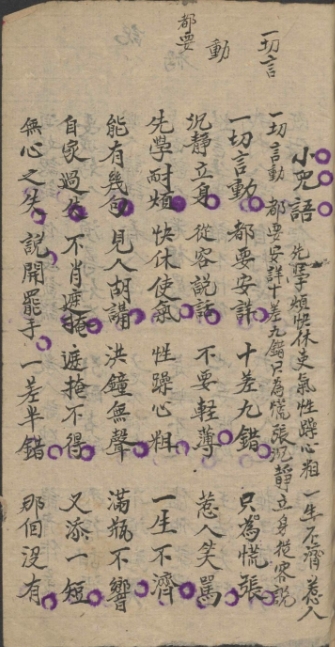 一切言
動
都要
小兒語
先學煩快休使氣性躁心粗一生不濟惹人
一切言動都要安詳十差九錯只為慌張沉靜立身從容說
一切言動 都要安詳 十差九錯 只為慌張
沉靜立身 從容說話 不要輕薄 惹人笑罵
先學耐煩 快休使氣 性躁心粗 一生不濟
能有幾句 見人胡講 洪鐘無聲 滿瓶不響
自家過失 不肖遮掩 遮掩不得 又添一短
無心之失 說開罷手 一差半錯 那個沒有